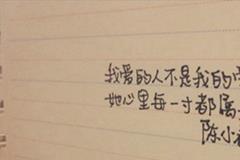 我爱的人不是我的
她心里每一寸都属
陈小